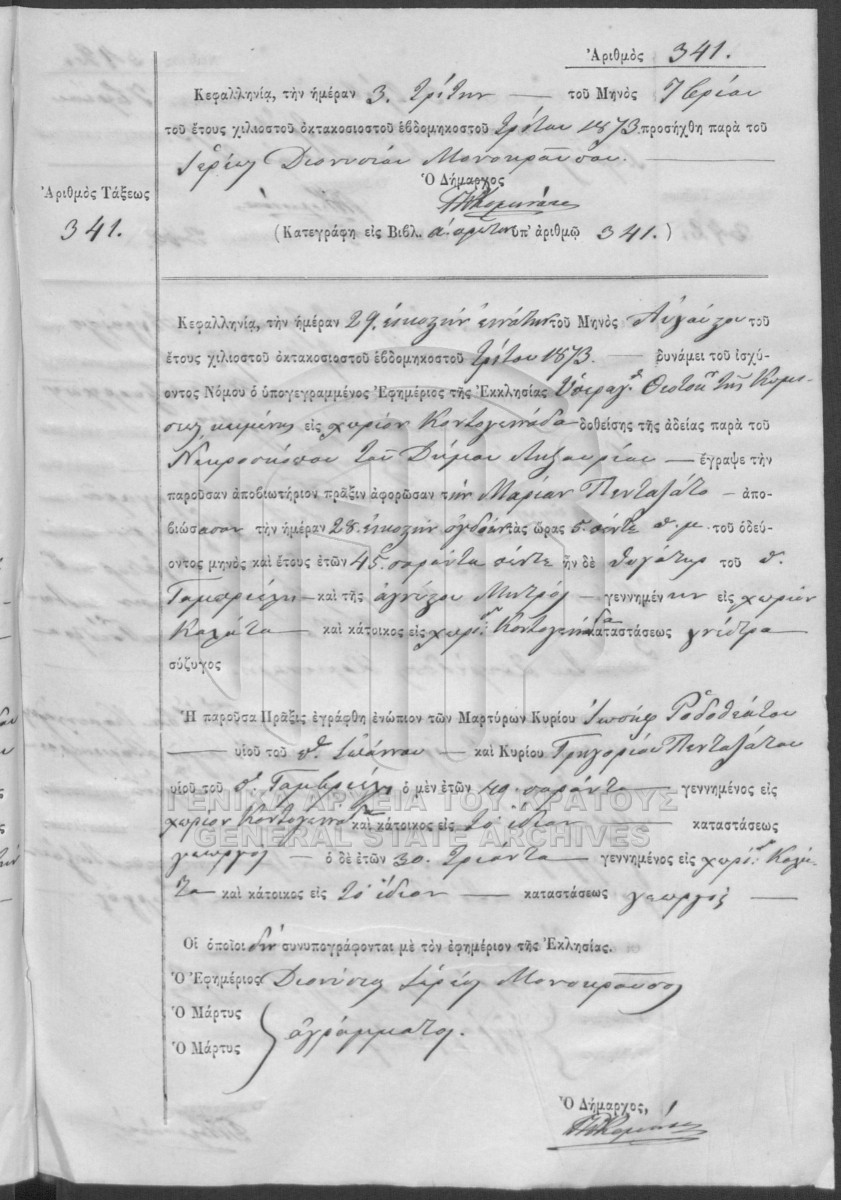 Ἀριθμὸς 341.
Κεφαλληνίᾳ, τὴν ἡμέραν 3. τρίτην — τοῦ Μηνὸς 7βρίου
τοῦ ἔτους χιλιοστοῦ ὀκτακοσιοστοῦ ἑβδομηκοστοῦ τρίτου 1873. προσήχθη παρὰ τοῦ
Ἱερέως Διονυσίου Μονοκρούσου. —
Ὁ Δήμαρχος
Ἀριθμὸς Τάξεως
341.
(Κατεγράφη εἰς Βιβλ. ὑπ' ἀριθμῷ 341.)
Κεφαλληνίᾳ, τὴν ἡμέραν 29. εἰκοστὴν ἐννάτην τοῦ Μηνὸς Αὐγούστου τοῦ
ἔτους χιλιοστοῦ ὀκτακοσιοστοῦ ἑβδομηκοστοῦ τρίτου 1873. — δυνάμει τοῦ ἰσχύ-
οντος Νόμου ὁ ὑπογεγραμμένος Ἐφημέριος τῆς Ἐκκλησίας Ὑπεραγ. Θεοτόκ. τῆς Κοιμή-
σεως κειμένης εἰς χωρίον Κοντογενάδα δοθείσης τῆς ἀδείας παρὰ τοῦ
Νεκροσκόπου τοῦ Δήμου Ληξουρίου — ἔγραψε τὴν
παροῦσαν ἀποβιωτήριον πρᾶξιν ἀφορῶσαν τὴν Μαρίαν Πενταζάτο — ἀπο-
βιώσασαν τὴν ἡμέραν 28. εἰκοστὴν ὀγδόην τὰς ὥρας 5. πέντε π.μ. τοῦ ὁδεύ-
οντος μηνὸς καὶ ἔτους ἐτῶν 45. σαράντα πέντε ἦν δὲ θυγάτηρ τοῦ π.
Γαμπριέλη — καὶ τῆς — γεννημένην εἰς χωρίον
Καλάτα — καὶ κάτοικος εἰς χωρί: Κοντογενάδα καταστάσεως γνέστρα
σύζυγος
Ἡ παροῦσα Πρᾶξις ἐγράφθη ἐνώπιον τῶν Μαρτύρων Κυρίου Ἰωσὴφ Ροδοθεάτου
— υἱοῦ τοῦ π. Ἰωάννου — καὶ Κυρίου Γρηγορίου Πενταζάτου
υἱοῦ τοῦ π. Γαμβριέλη ὁ μὲν ἐτῶν 40. σαράντα — γεννημένος εἰς
χωρίον Κοντογενάδα καὶ κάτοικος εἰς τὸ ἴδιον — καταστάσεως
γεωργὸς — ὁ δὲ ἐτῶν 30. τριάντα — γεννημένος εἰς χωρί: Καλά-
τα — καὶ κάτοικος εἰς τὸ ἴδιον — καταστάσεως γεωργὸς —
Οἱ ὁποῖοι δὲν συνυπογράφονται μὲ τὸν ἐφημέριον τῆς Ἐκλησίας.
Ὁ Ἐφημέριος Διονύσιος Ἱερεὺς Μονοκρούσος
Ὁ Μάρτυς
Ὁ Μάρτυς
ἀγράμματοι.
Ὁ Δήμαρχος,
ΓΕΝΙΚΑ ΑΡΧΕΙΑ ΤΟΥ ΚΡΑΤΟΥΣ
GENERAL STATE ARCHIVES